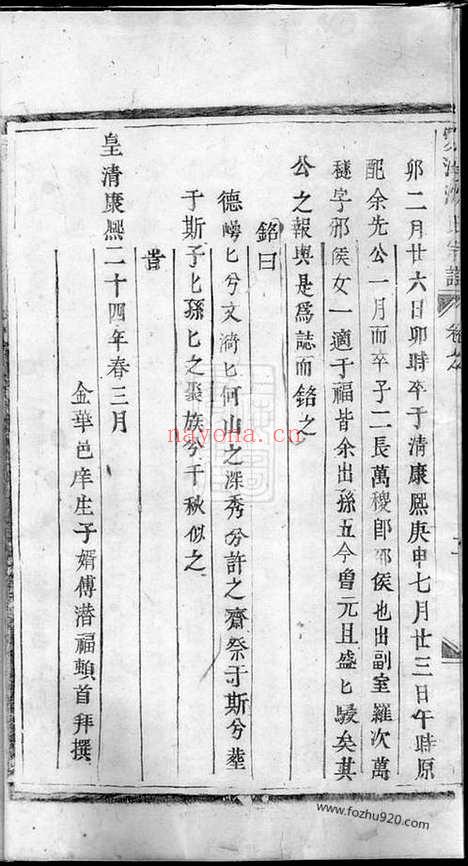 卯二月廿六日卯時卒于清康熙庚申七月廿三日午時原
配余先公一月而卒子二長萬稷卽邢侯也出副室羅次萬
穟字邪侯女一適于福皆余出孫五今曾元且盛匕駸矣其
公之報與是爲誌而銘之
銘曰
德嶙匕兮文漪匕何山之深秀兮許之齋祭于斯兮塟
于斯子匕孫匕之聚族兮千秋似之
旹
皇清康熙二十四年春三月
金華邑庠生子婿傅潜福頓首拜撰
氏宗譜
卷之
nayona.cn
www.fozhu920.com